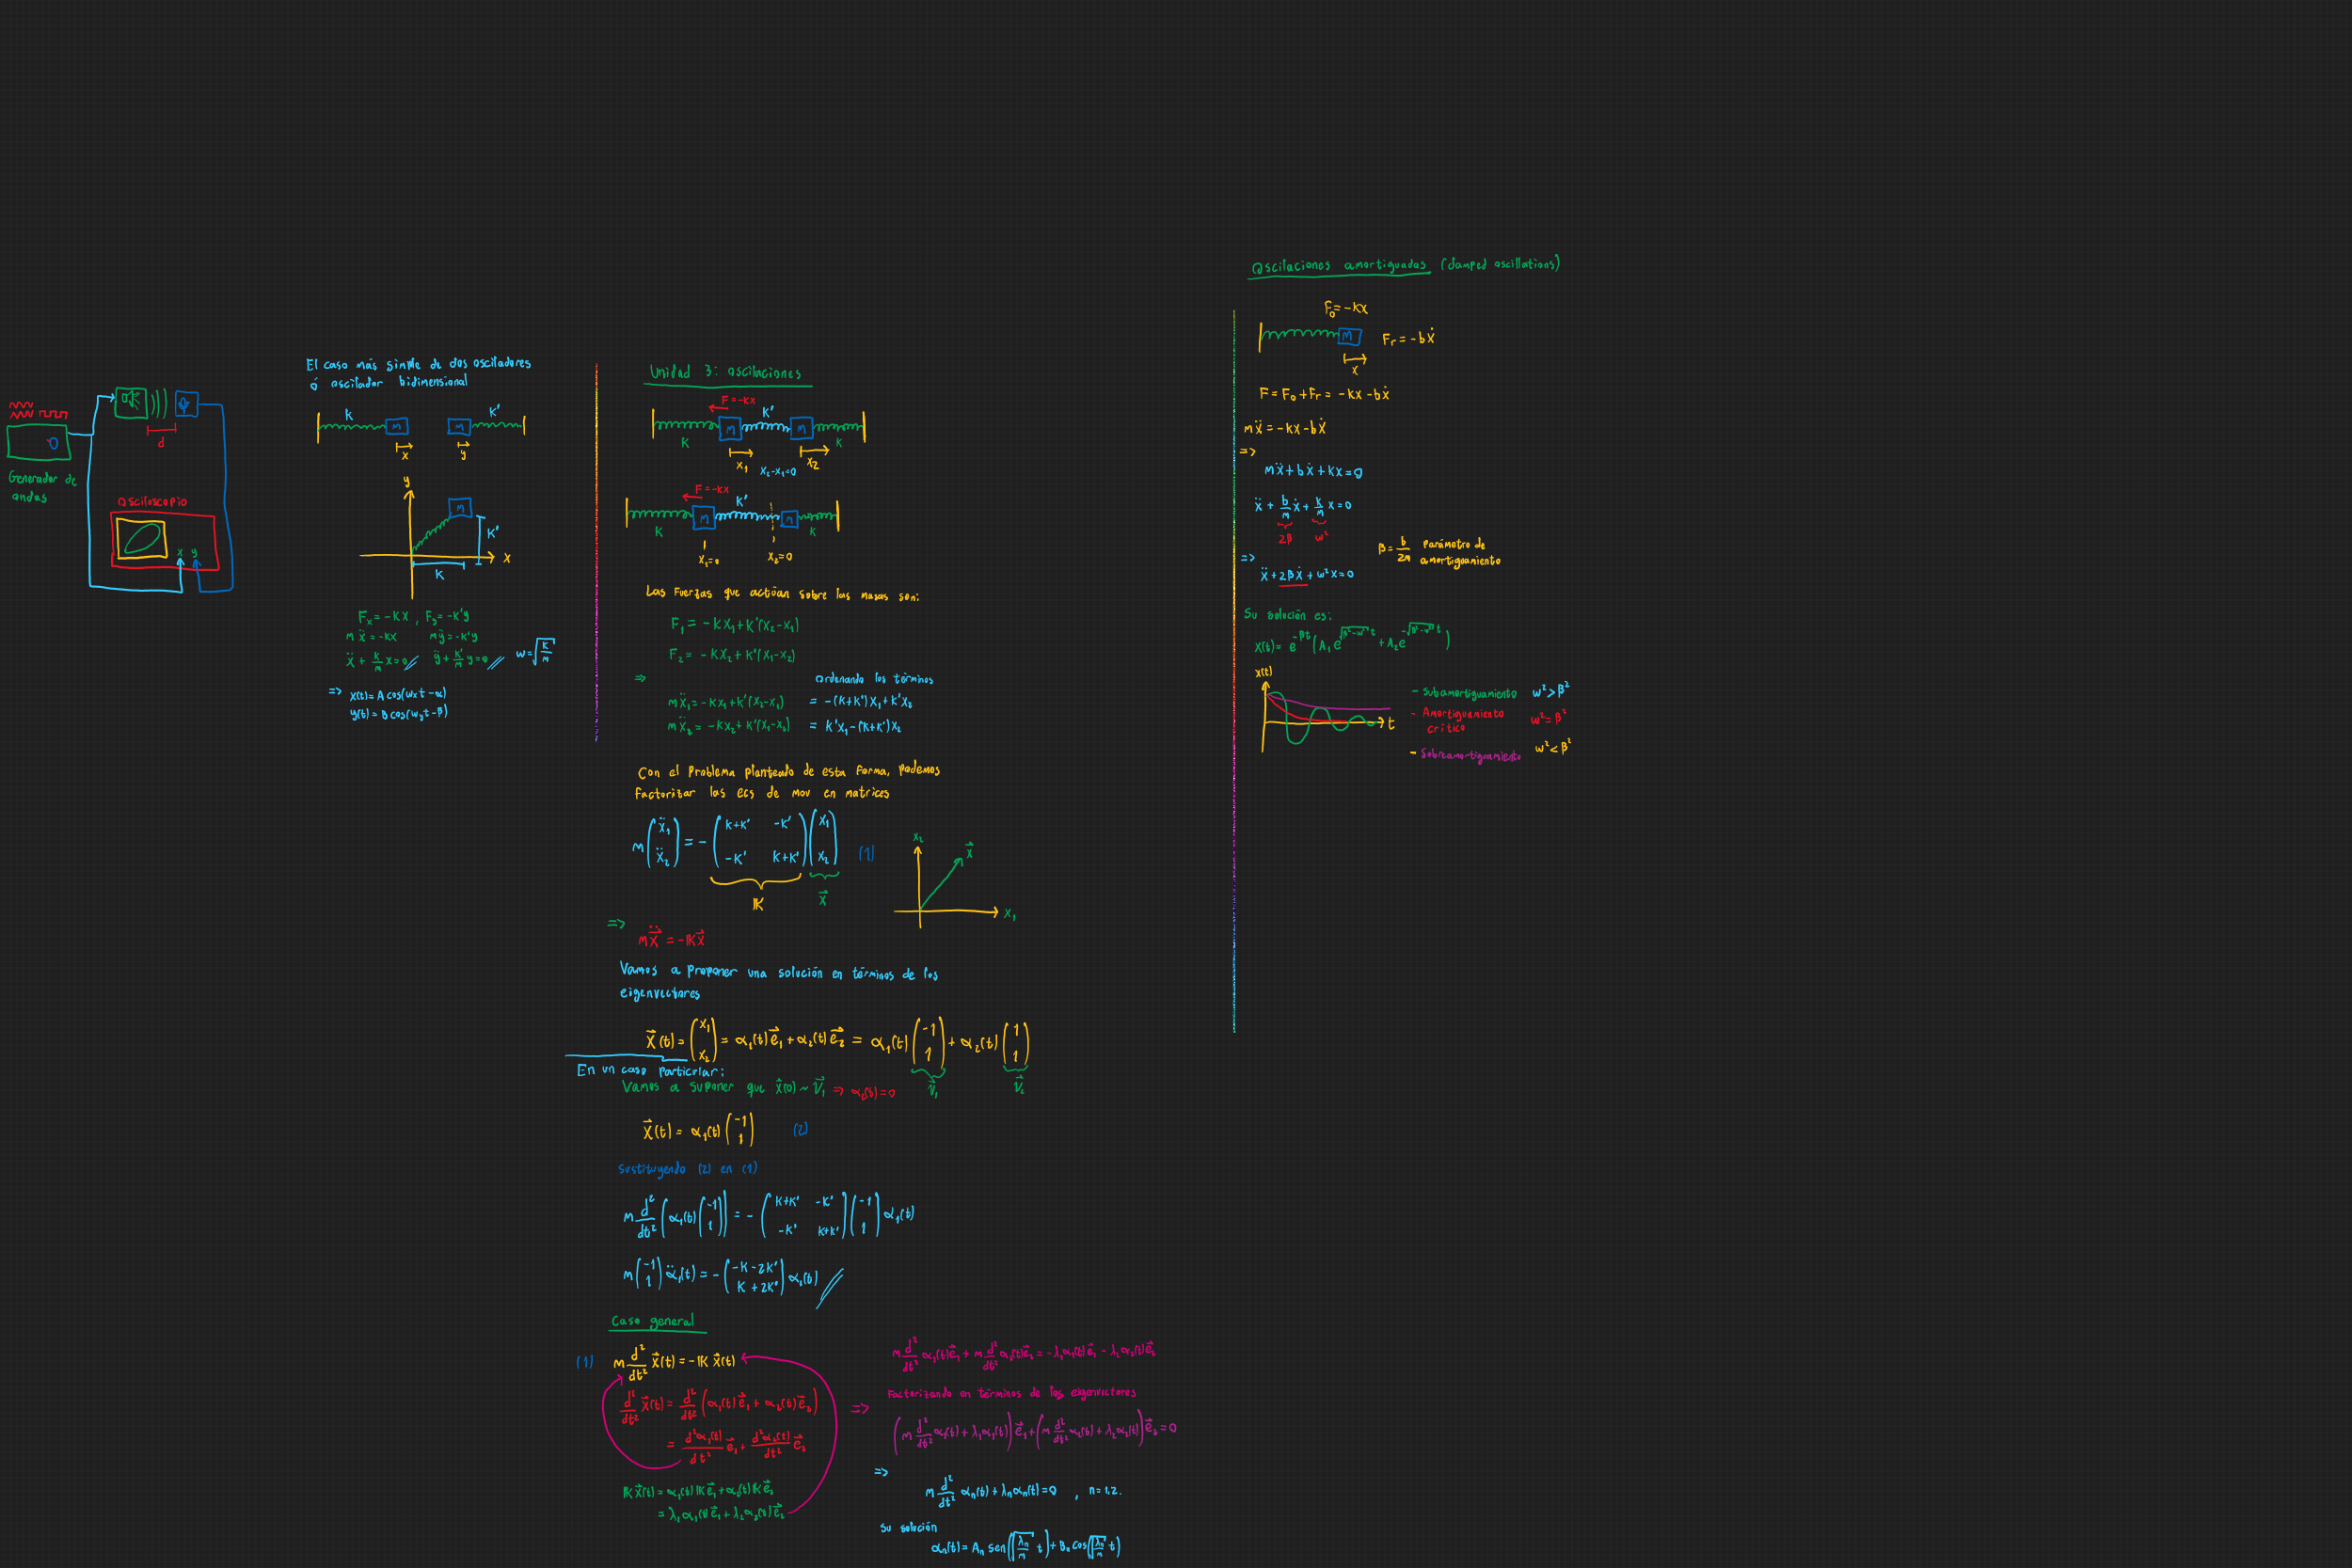 d
Generador de
ondas
Osciloscopio
x y
El caso más simple de dos osciladores
ó oscilador bidimensional
k m m K'
x y
y
m
K'
K
x
Fx = -Kx , Fy = -K'y
mẍ = -Kx mÿ = -K'y
ẍ + K/m x = 0 ÿ + K'/m y = 0 w = √(K/m)
=> x(t) = A cos(wx t - α)
y(t) = B cos(wy t - β)
Unidad 3: oscilaciones
F = -Kx K'
K m m K
x₁ x₂-x₁=0 x₂
F = -Kx
K'
K m m K
x₁=0 x₂=0
Las fuerzas que actúan sobre las masas son:
F₁ = -Kx₁ + K'(x₂-x₁)
F₂ = -Kx₂ + K'(x₁-x₂)
=> Ordenando los términos
mẍ₁ = -Kx₁ + K'(x₂-x₁) = -(K+K')x₁ + K'x₂
mẍ₂ = -Kx₂ + K'(x₁-x₂) = K'x₁ - (K+K')x₂
Con el problema planteado de esta forma, podemos
factorizar las ecs de mov en matrices
m (ẍ₁ ẍ₂) = - (K+K' -K' -K' K+K') (x₁ x₂) (1)
𝕂 x⃗
x₂ x⃗ x₁
=> mẍ⃗ = -𝕂x⃗
Vamos a proponer una solución en términos de los
eigenvectores
x⃗(t) = (x₁ x₂) = α₁(t)e⃗₁ + α₂(t)e⃗₂ = α₁(t)(-1 1) + α₂(t)(1 1)
V⃗₁ V⃗₂
En un caso particular:
Vamos a suponer que x⃗(0) ~ V⃗₁ => α₂(t) = 0
x⃗(t) = α₁(t)(-1 1) (2)
Sustituyendo (2) en (1)
m d²/dt² (α₁(t)(-1 1)) = - (K+K' -K' -K' K+K') (-1 1) α₁(t)
m (-1 1) α̈₁(t) = - (-K-2K' K+2K') α₁(t)
Caso general
(1) m d²/dt² x⃗(t) = -𝕂 x⃗(t)
d²/dt² x⃗(t) = d²/dt² (α₁(t)e⃗₁ + α₂(t)e⃗₂)
= d²α₁(t)/dt² e⃗₁ + d²α₂(t)/dt² e⃗₂
𝕂x⃗(t) = α₁(t)𝕂e⃗₁ + α₂(t)𝕂e⃗₂
= λ₁α₁(t)e⃗₁ + λ₂α₂(t)e⃗₂
m d²/dt² α₁(t)e⃗₁ + m d²/dt² α₂(t)e⃗₂ = -λ₁α₁(t)e⃗₁ - λ₂α₂(t)e⃗₂
=> Factorizando en términos de los eigenvectores
(m d²/dt² α₁(t) + λ₁α₁(t)) e⃗₁ + (m d²/dt² α₂(t) + λ₂α₂(t)) e⃗₂ = 0
=>
m d²/dt² αₙ(t) + λₙαₙ(t) = 0 , n = 1,2.
Su solución
αₙ(t) = Aₙ sen(√(λₙ/m) t) + Bₙ cos(√(λₙ/m) t)
Oscilaciones amortiguadas (damped oscillations)
F₀ = -Kx
m Fr = -bẋ
x
F = F₀ + Fr = -Kx - bẋ
mẍ = -Kx - bẋ
=>
mẍ + bẋ + Kx = 0
ẍ + b/m ẋ + K/m x = 0
2β w²
β = b/2m Parámetro de
amortiguamiento
=>
ẍ + 2βẋ + w²x = 0
Su solución es:
x(t) = e^(-βt) (A₁ e^(√(β²-w²) t) + A₂ e^(-√(β²-w²) t))
x(t)
t
- Subamortiguamiento w² > β²
- Amortiguamiento
crítico w² = β²
- Sobreamortiguamiento w² < β²